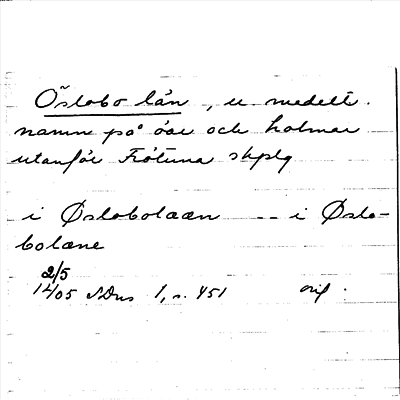 Öslobo lån, u. medelt.
namn på öar och holmar
utanför Frötuna skplg
i Øslobolaan -- i Øslo-
bolane
2/5
1405 SDns 1, s. 451 orig.